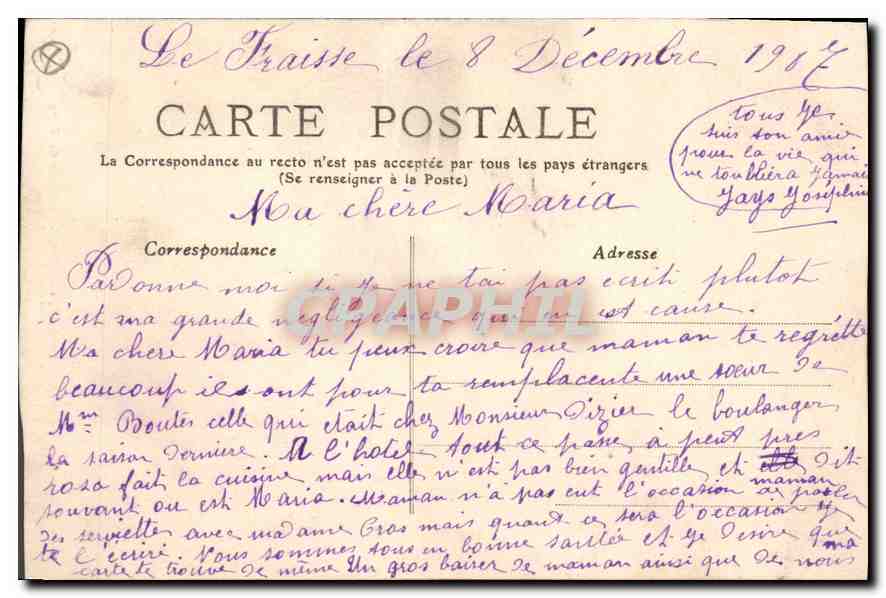 Le Fraisse le 8 Décembre 1907
CARTE POSTALE
La Correspondance au recto n'est pas acceptée par tous les pays étrangers
(Se renseigner à la Poste)
tous Je
suis ton amie
pour la vie qui
ne toubliera Jamais
Jays Joséphine
Ma chère Maria
Correspondance
Adresse
Pardonne moi si Je ne tai pas ecrit plutot
c'est ma grande negligeance qui en est cause.
Ma chere Maria tu peux croire que maman te regrette
beaucoup ils ont pour ta remplacente une soeur de
Mme Boutes celle qui etait chez Monsieur Dizier le boulanger
la saison derniere. A l'hotel tout ce passe à peut pres
rosa fait la cuisine, mais elle n'est pas bien gentille et dit
souvant ou est Maria. Maman n'a pas eut l'occasion maman de parler
des serviettes avec madame Cros mais quant ce sera l'occasion Je
te l'écriré. Nous sommes tous en bonne santée et je desire que ma
carte te trouve de même Un gros baiser de maman ainsi que de nous
CPAPHIL